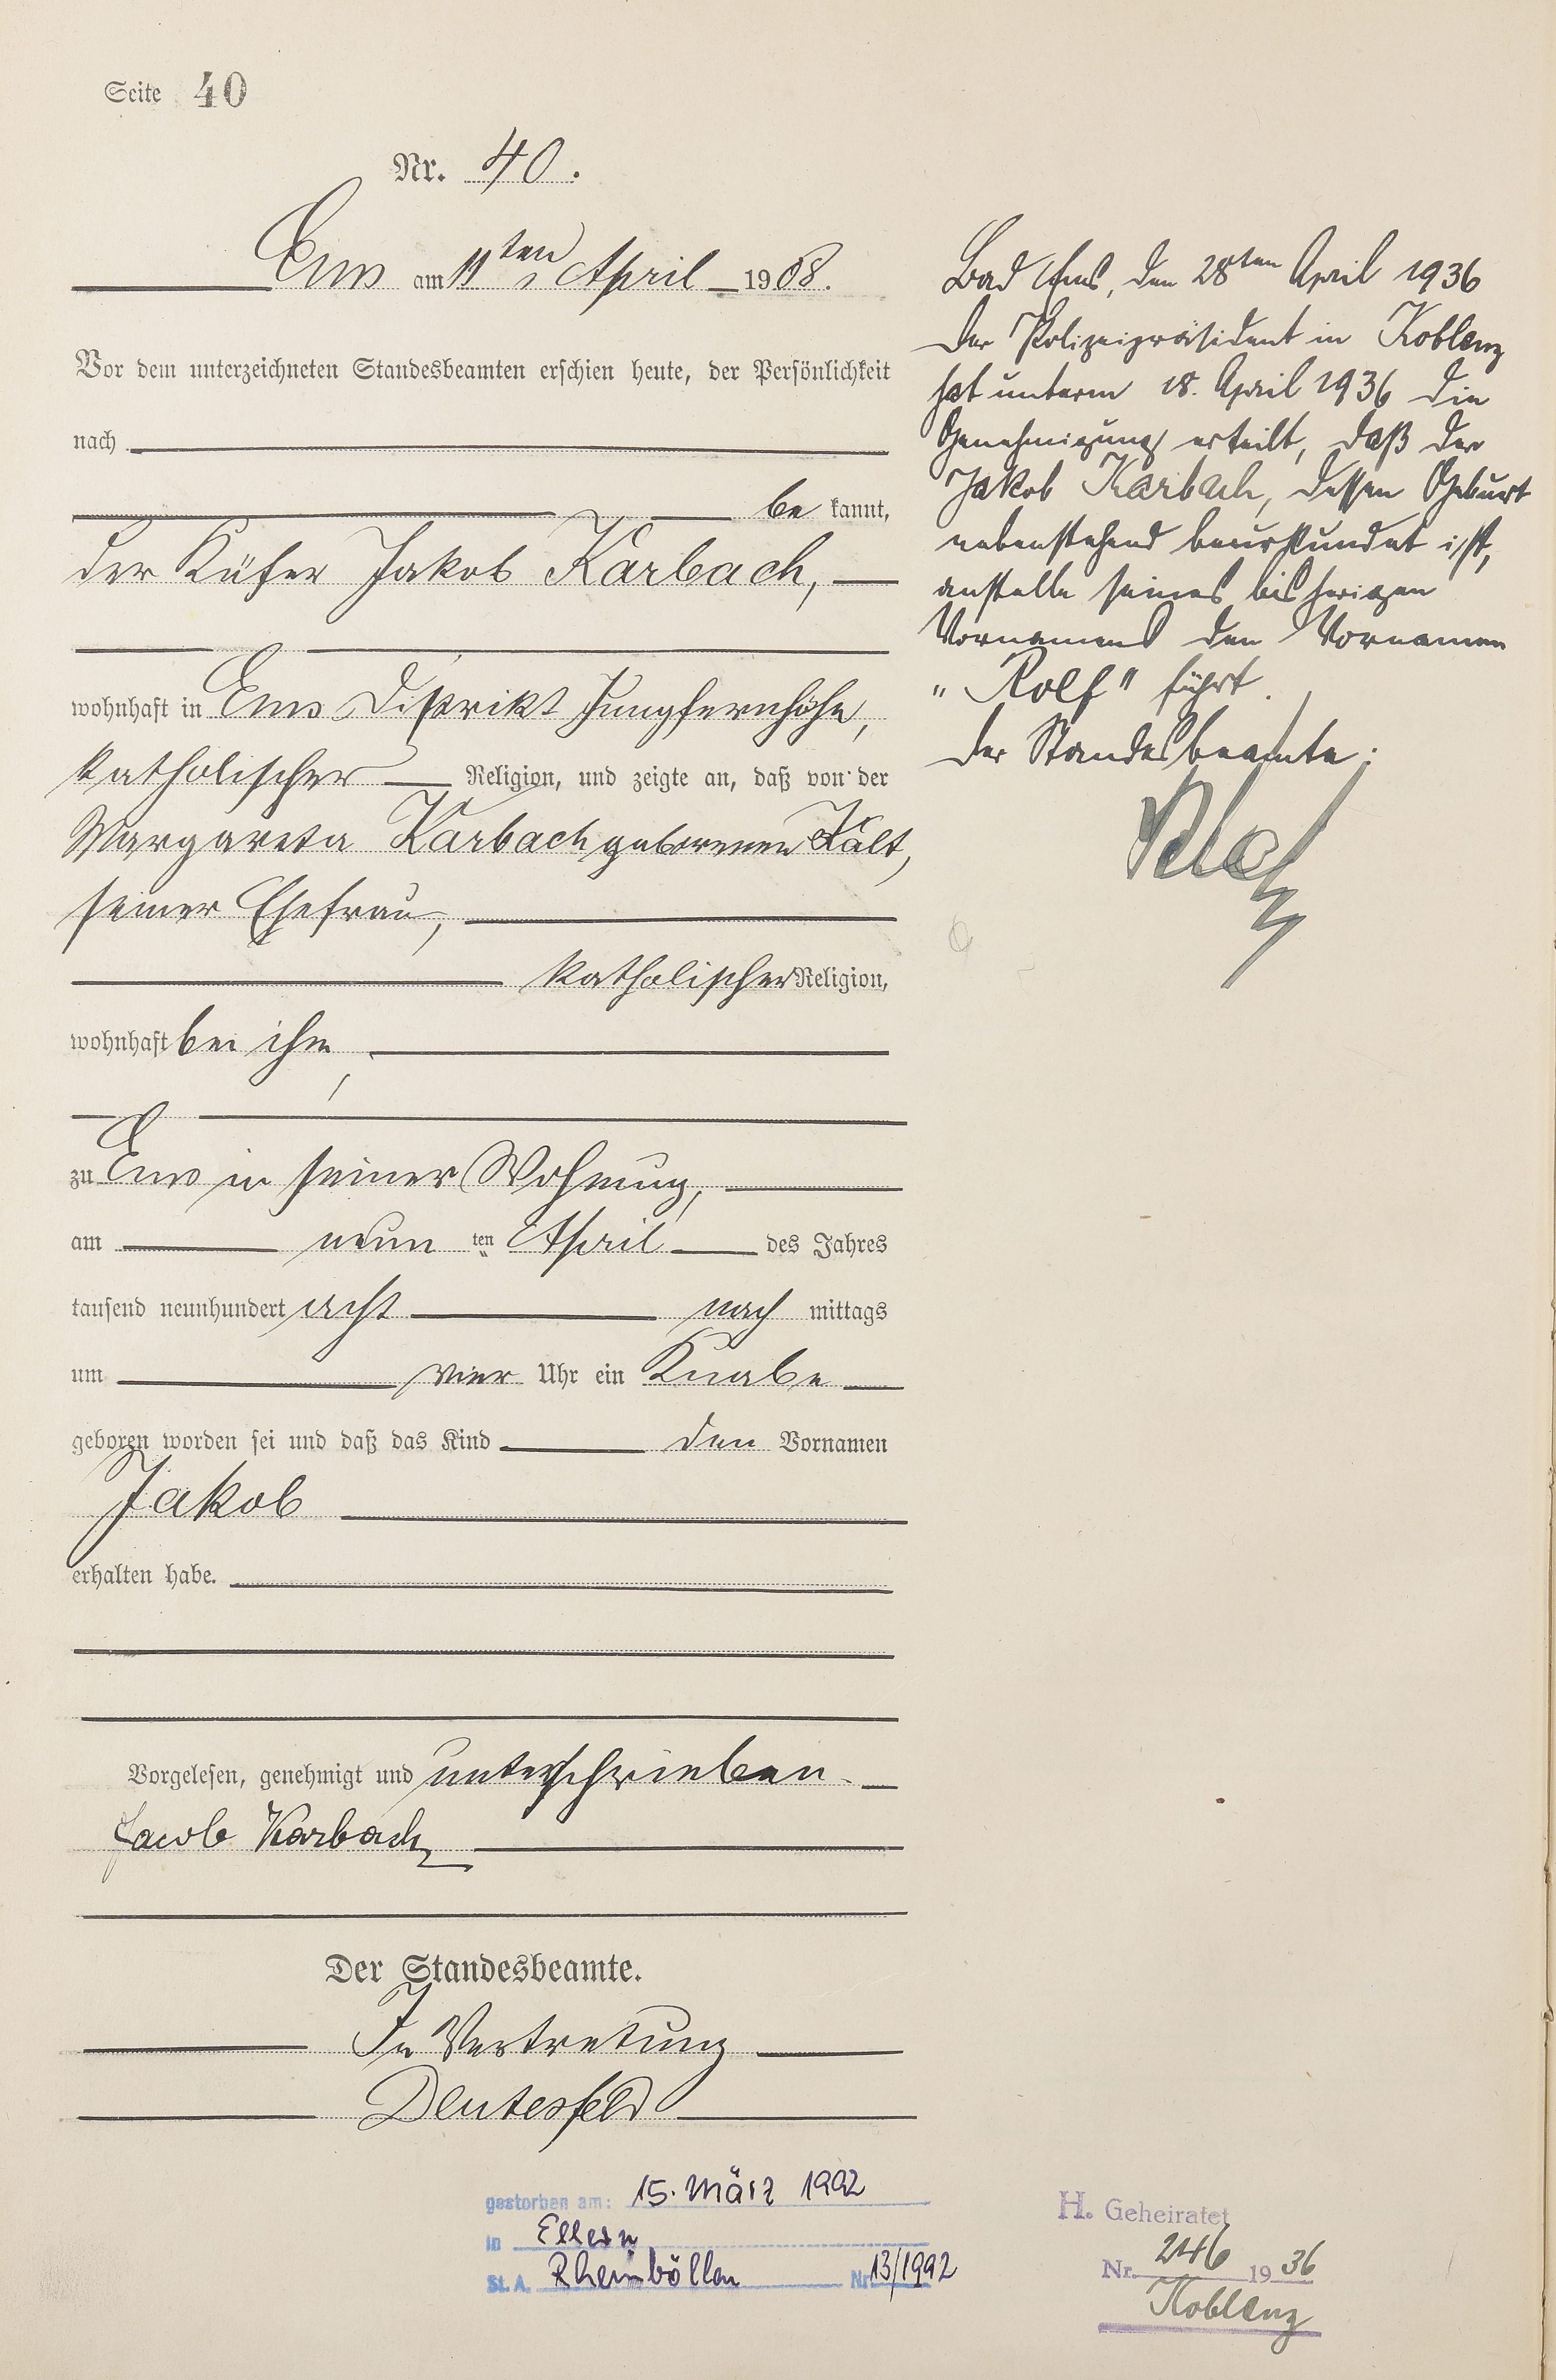 Seite 40
Nr. 40.
Ems am 11ten April 1908.
Vor dem unterzeichneten Standesbeamten erschien heute, der Persönlichkeit
nach
be kannt,
der Küfer Jakob Karbach,
wohnhaft in Ems Distrikt Jungfernhöhe,
katholischer Religion, und zeigte an, daß von der
Margareta Karbach geborenen Kalt,
seiner Ehefrau,
katholischer Religion,
wohnhaft bei ihm,
zu Ems in seiner Wohnung,
am neun ten April des Jahres
tausend neunhundert acht nach mittags
um vier Uhr ein Knabe
geboren worden sei und daß das Kind den Vornamen
Jakob
erhalten habe.
Vorgelesen, genehmigt und unterschrieben
Jacob Karbach
Der Standesbeamte.
In Vertretung
Deutesfeld
gestorben am: 15. März 1992
in Ellern
St. A. Rheinböllen Nr. 13/1992
Bad Ems, den 28ten April 1936
Der Polizeipräsident in Koblenz
hat unterm 18. April 1936 die
Genehmigung erteilt, daß der
Jakob Karbach, dessen Geburt
nebenstehend beurkundet ist,
anstelle seines bisherigen
Vornamens den Vornamen
„Rolf" führt.
Der Standesbeamte:
H. Geheiratet
Nr. 246 1936
Koblenz